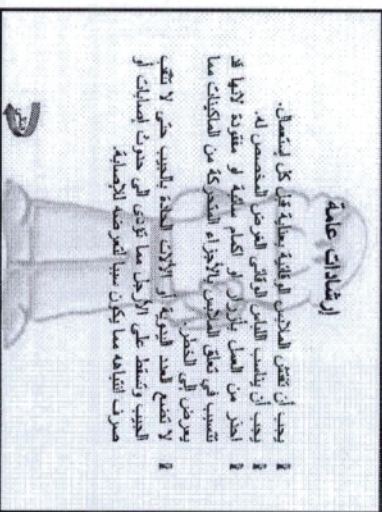 إرشادات عامة
يجب أن تفتش الملابس الوقائية بعناية قبل كل إستعمال.
يجب أن يناسب اللباس الوقائى الغرض المخصص له.
احذر من العمل بأزرار او اكمام سائبة او مفقودة لأنها قد
تتسبب في تعلق الملابس بالأجزاء المتحركة من الماكينات مما
يعرض إلى الخطر.
لا تضع العدد اليدوية أو الآلات الحادة بالجيب حتى لا تثقب
الجيب وتسقط على الأرجل مما تؤدى الى حدوث إصابات أو
صرف انتباهه مما يكون سببا لتعرضه للإصابة.